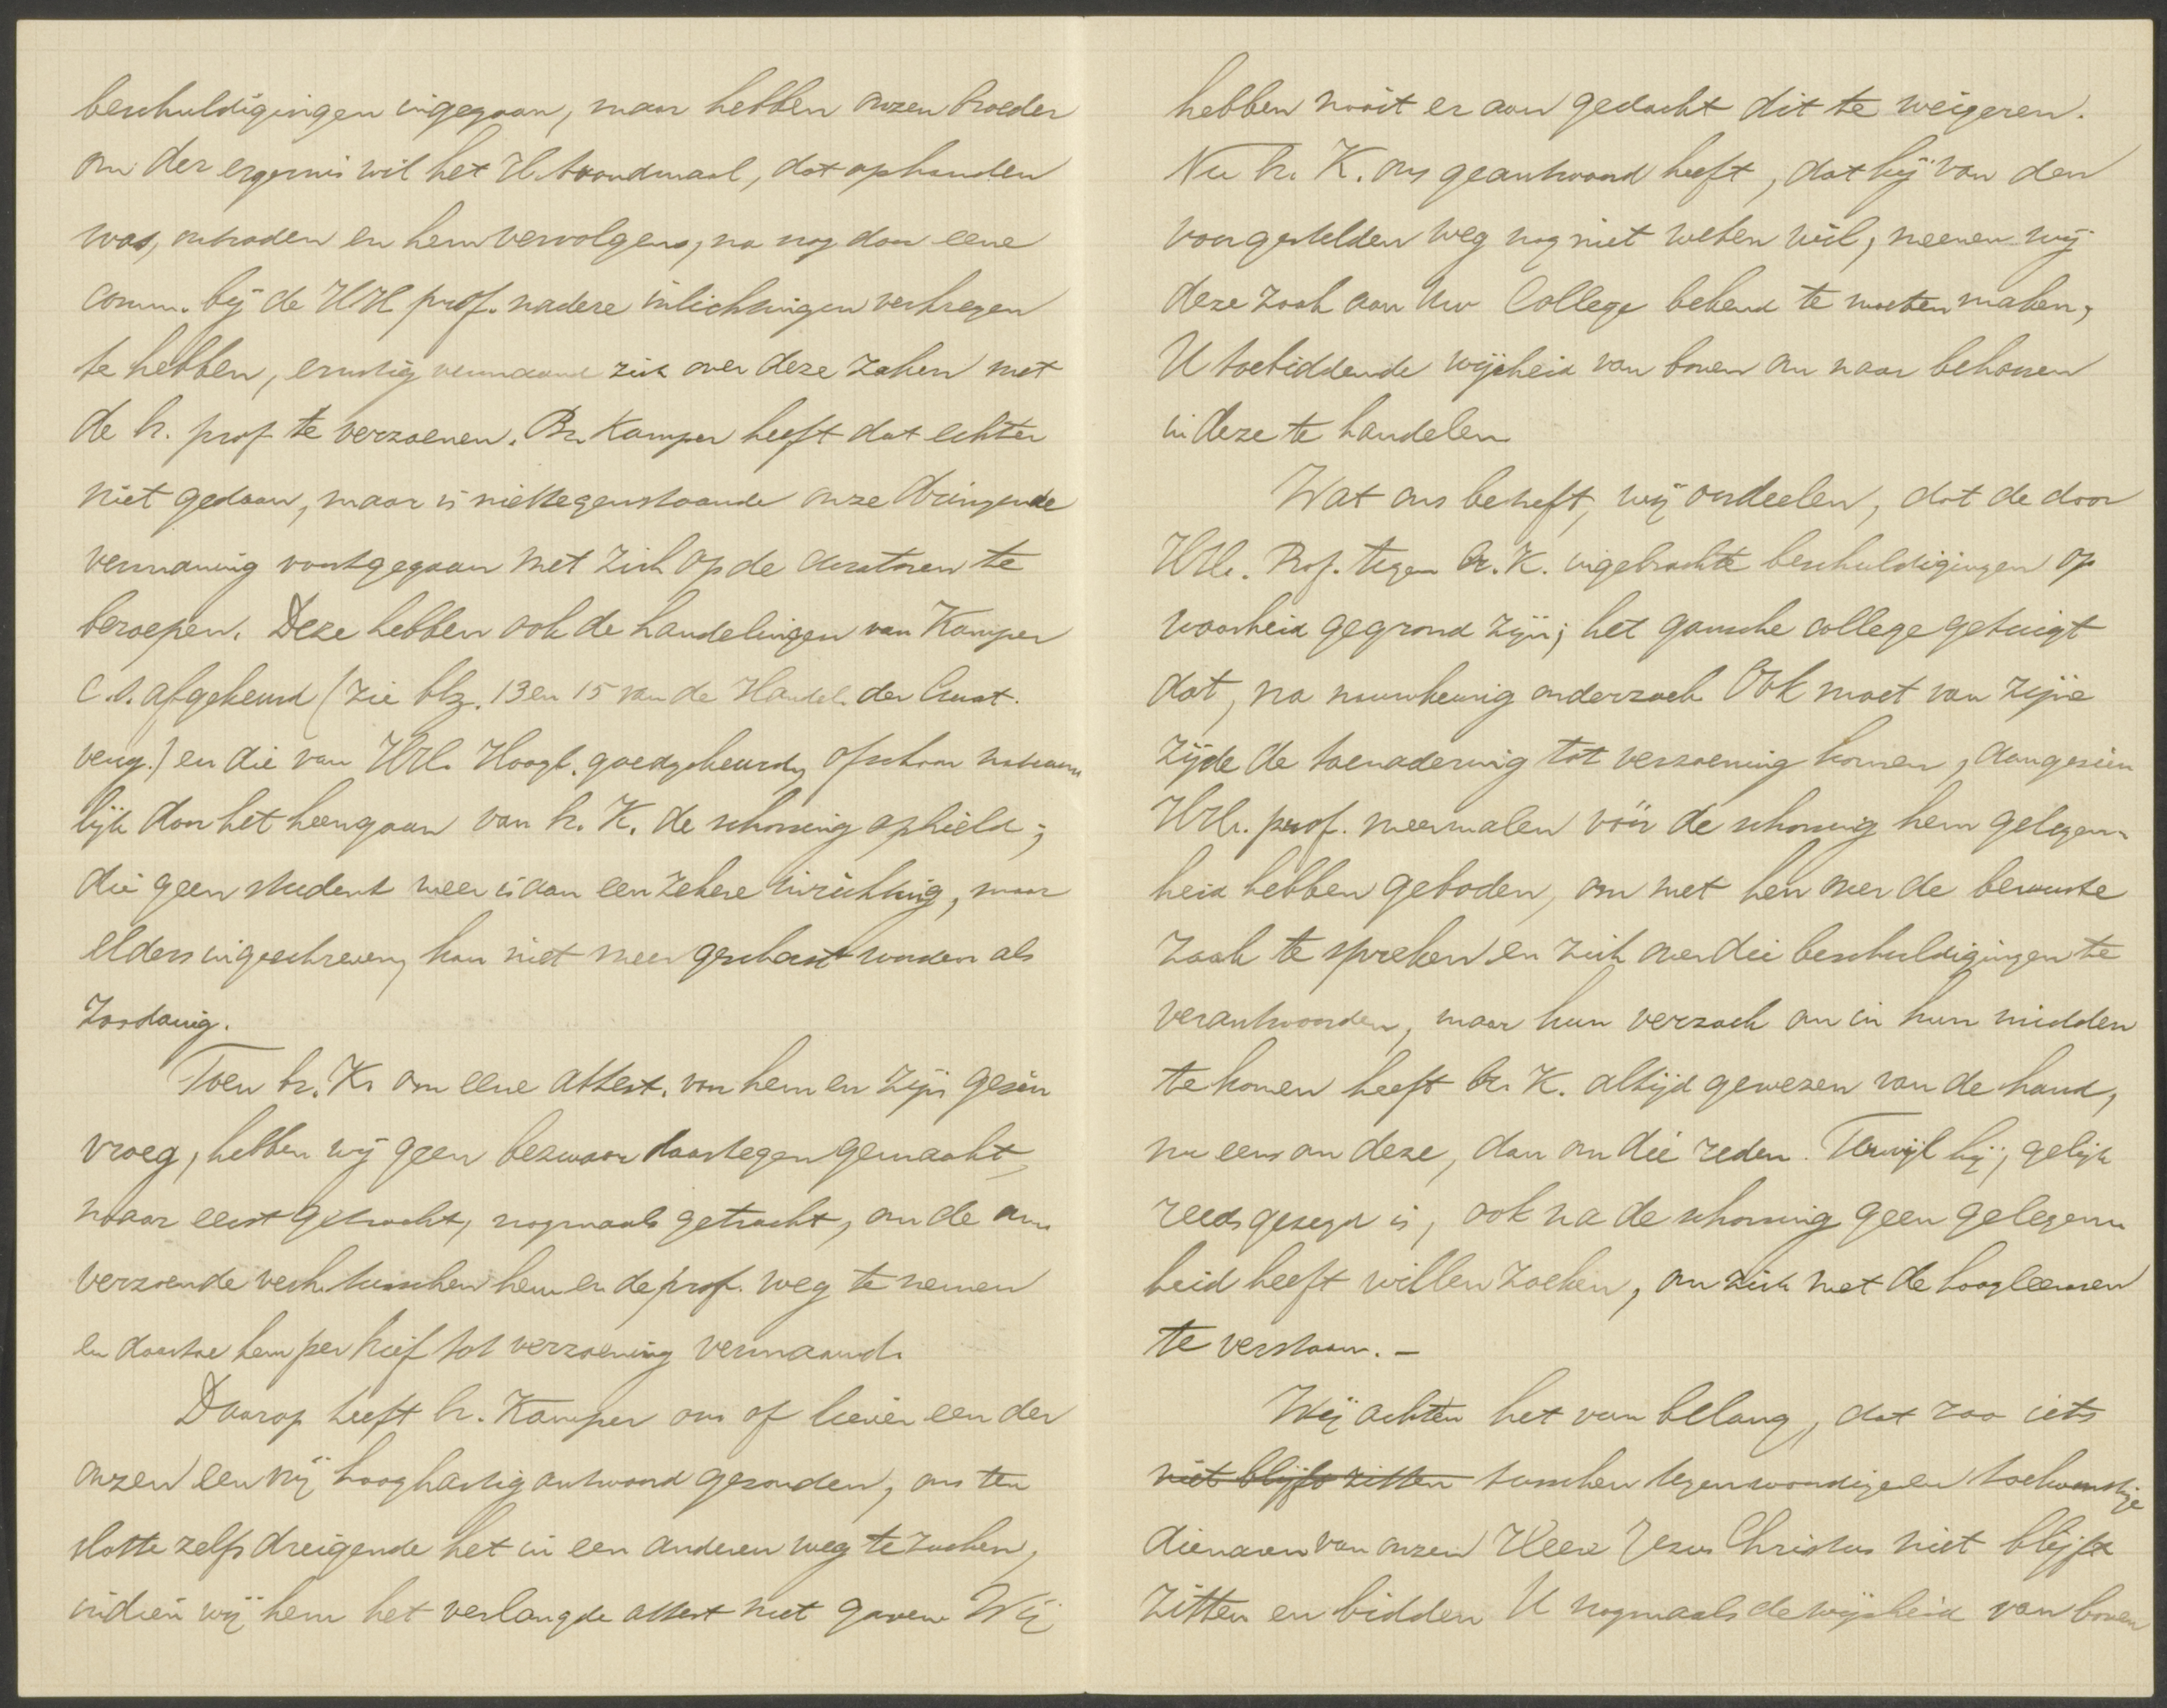 beschuldigingen ingegaan, maar hebben onzen broeder
om der ergernis wil het H. Avondmaal, dat ophanden
was, ontraden en hem vervolgens, na nog door eene
comm. bij de HH prof. nadere inlichtingen verkregen
te hebben, ernstig vermaand zich over deze zaken met
de h. prof. te verzoenen. Br. Kamper heeft dat echter
niet gedaan, maar is niettegenstaande onze dringende
vermaning voortgegaan met zich op de curatoren te
beroepen. Deze hebben ook de handelingen van Kamper
c.s. afgekeurd (zie blz. 13 en 15 van de Handel. der Curat.
verg.) en die van HH. Hoogl. goedgekeurd, ofschoon natuur
lijk door het heengaan van br. K. de schorsing ophield;
die geen student meer is aan een zekere inrichting, maar
elders ingeschreven, kan niet meer geschorst worden als
zoodanig.
Toen br. K. om eene attest. van hem en zijn gezin
vroeg, hebben wij geen bezwaar daartegen gemaakt,
maar eerst getracht, nogmaals getracht, om de on-
verzoende verh. tusschen hem en de prof. weg te nemen
en daartoe hem per brief tot verzoening vermaand.
Daarop heeft br. Kamper ons of liever een der
onzen een vrij hooghartig antwoord gezonden, ons ten
slotte zelfs dreigende het in een anderen weg te zoeken,
indien wij hem het verlangde attest niet gaven. Wij
hebben nooit er aan gedacht dit te weigeren.
Nu br. K. ons geantwoord heeft, dat hij van den
voorgestelden weg nog niet weten wil, meenen wij
deze zaak aan Uw College bekend te moeten maken,
U toebiddende wijsheid van boven om naar behooren
in deze te handelen
Wat ons betreft, wij oordeelen, dat de door
HH. Prof. tegen br. K. ingebrachte beschuldigingen op
waarheid gegrond zijn; het gansche college getuigt
dat, na nauwkeurig onderzoek. Ook moet van zijne
zijde de toenadering tot verzoening komen, aangezien
HH. prof. meermalen vóór de schorsing hem gelegen-
heid hebben geboden, om met hen over de bewuste
zaak te spreken en zich over die beschuldigingen te
verantwoorden, maar hun verzoek om in hun midden
te komen heeft br. K. altijd gewezen van de hand,
nu eens om deze, dan om die reden. Terwijl hij, gelijk
reeds gezegd is, ook na de schorsing geen gelegen-
heid heeft willen zoeken, om zich met de hoogleeraren
te verstaan. –
Wij achten het van belang, dat zoo iets
niet blijft zitten tusschen tegenwoordige en toekomstige
dienaren van onzen Heere Jezus Christus niet blijft
zitten en bidden U nogmaals de wijsheid van boven